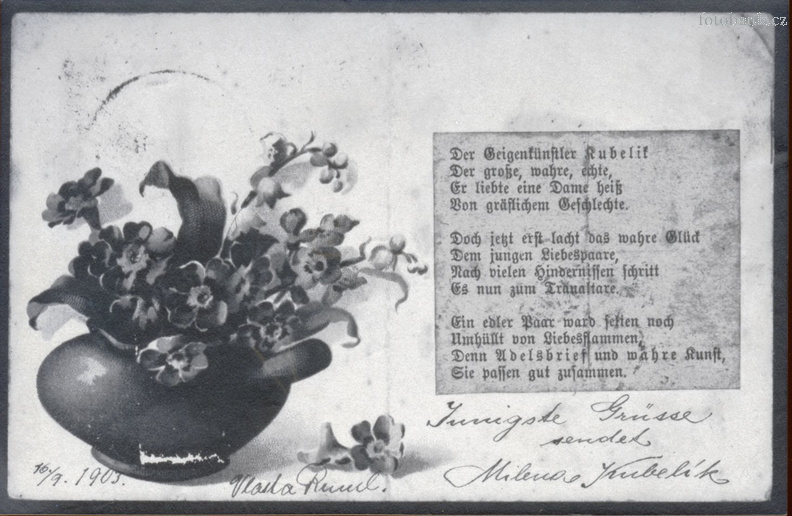 fotobanka.cz
Der Geigenkünstler Kubelik
Der große, wahre, echte,
Er liebte eine Dame heiß
Von gräflichem Geschlechte.
Doch jetzt erst lacht das wahre Glück
Dem jungen Liebespaare,
Nach vielen Hindernissen schritt
Es nun zum Traualtare.
Ein edler Paar ward selten noch
Umhüllt von Liebesflammen,
Denn Adelsbrief und wahre Kunst,
Sie passen gut zusammen.
Innigste Grüsse
sendet
Milena Kubelík
16/9. 1903.
Vlasta